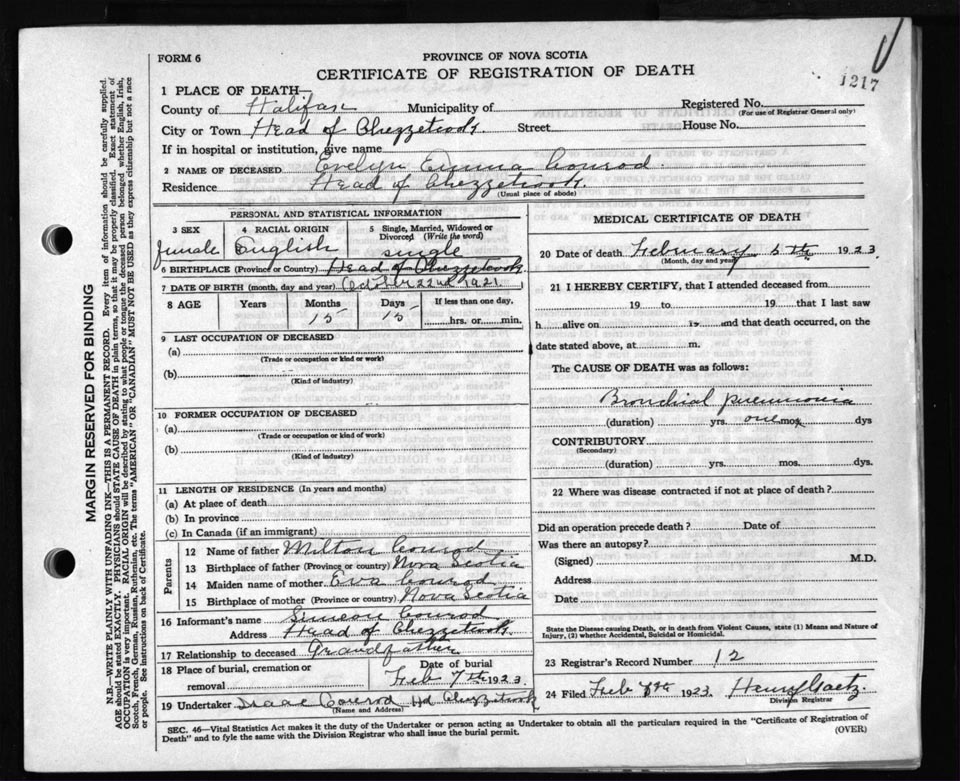 FORM 6
PROVINCE OF NOVA SCOTIA
CERTIFICATE OF REGISTRATION OF DEATH
1217
1 PLACE OF DEATH—
County of Halifax Municipality of Registered No.
(For use of Registrar General only)
City or Town Head of Chezzetcook. Street House No.
If in hospital or institution, give name
2 NAME OF DECEASED Evelyn Emma Conrod
Residence Head of Chezzetcook.
(Usual place of abode)
PERSONAL AND STATISTICAL INFORMATION
3 SEX 4 RACIAL ORIGIN 5 Single, Married, Widowed or Divorced (Write the word)
female English single
6 BIRTHPLACE (Province or Country) Head of Chezzetcook
7 DATE OF BIRTH (month, day and year) October 22nd 1921.
8 AGE Years Months Days If less than one day,
15 15 hrs. or min.
9 LAST OCCUPATION OF DECEASED
(a)
(Trade or occupation or kind or work)
(b)
(Kind of industry)
10 FORMER OCCUPATION OF DECEASED
(a)
(Trade or occupation or kind of work)
(b)
(Kind of industry)
11 LENGTH OF RESIDENCE (In years and months)
(a) At place of death
(b) In province
(c) In Canada (if an immigrant)
Parents
12 Name of father Milton Conrod
13 Birthplace of father (Province or country) Nova Scotia
14 Maiden name of mother Eva Conrod
15 Birthplace of mother (Province or country) Nova Scotia
16 Informant's name Simeon Conrod
Address Head of Chezzetcook
17 Relationship to deceased Grandfather
18 Place of burial, cremation or removal Date of burial
Feb 7th 1923.
19 Undertaker Isaac Conrod Hd Chezzetcook
(Name and Address)
MEDICAL CERTIFICATE OF DEATH
20 Date of death February 5th 1923.
(Month, day and year)
21 I HEREBY CERTIFY, that I attended deceased from
19 to 19 that I last saw
h alive on 19 and that death occurred, on the
date stated above, at m.
The CAUSE OF DEATH was as follows:
Bronchial pneumonia
(duration) yrs. one mos. dys
CONTRIBUTORY
(Secondary)
(duration) yrs. mos. dys.
22 Where was disease contracted if not at place of death?
Did an operation precede death? Date of
Was there an autopsy?
(Signed) M.D.
Address
Date
State the Disease causing Death, or in death from Violent Causes, state (1) Means and Nature of
Injury, (2) whether Accidental, Suicidal or Homicidal.
23 Registrar's Record Number 12
24 Filed Feb 1923. Henry Gaetz
Division Registrar
SEC. 46—Vital Statistics Act makes it the duty of the Undertaker or person acting as Undertaker to obtain all the particulars required in the "Certificate of Registration of
Death" and to fyle the same with the Division Registrar who shall issue the burial permit.
(OVER)
MARGIN RESERVED FOR BINDING
N.B.—WRITE PLAINLY WITH UNFADING INK—THIS IS A PERMANENT RECORD. Every item of information should be carefully supplied.
AGE should be stated EXACTLY. PHYSICIANS should STATE CAUSE OF DEATH in plain terms, so that it may be properly classified. Exact statement of
OCCUPATION is very important. RACIAL ORIGIN will be described by stating to what people or tongue the deceased person belonged whether English, Irish,
Scotch, French, German, Russian, Ruthenian, etc. The terms "AMERICAN" OR "CANADIAN" MUST NOT BE USED as they express citizenship but not a race
or people. See instructions on back of Certificate.